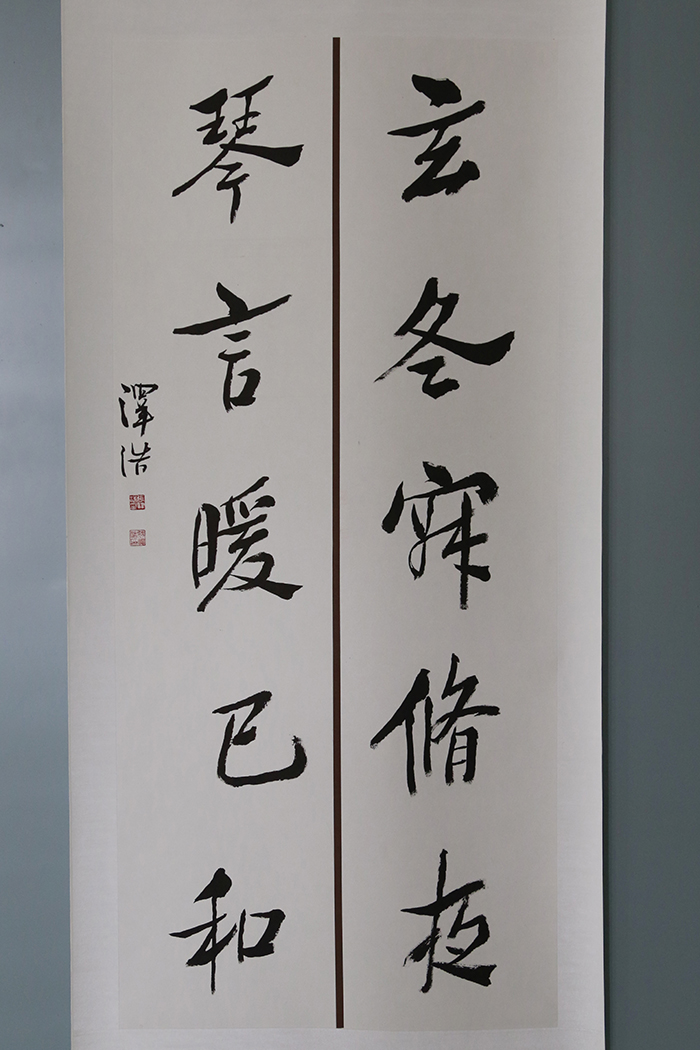 玄冬寂脩夜
琴言暖已和
澤浩